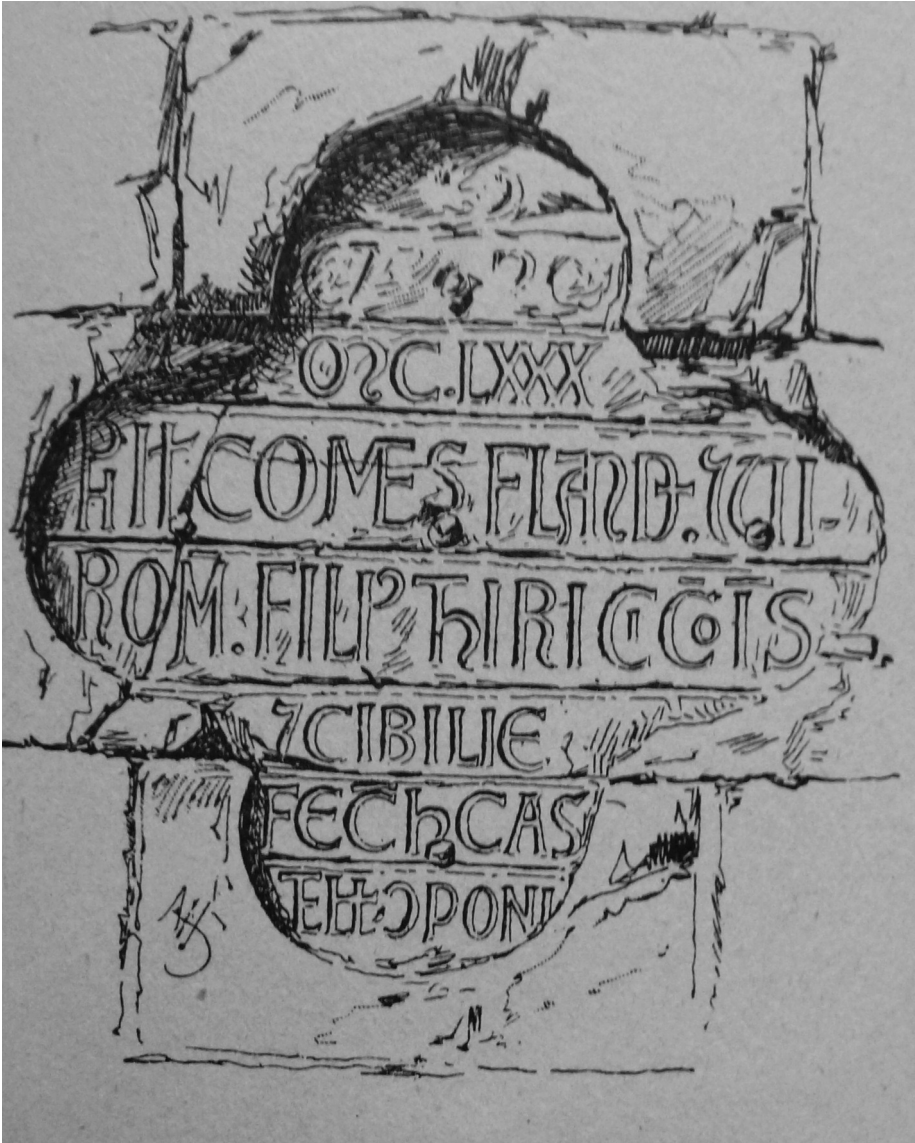 MC.LXXX
PHIL COMES FLAND. ⁊ VI-
ROM. FILIꝰ THIRICI COĪTIS
⁊ CIBILIE
FEC̄ h̄ CAS
TELL ↄPONI